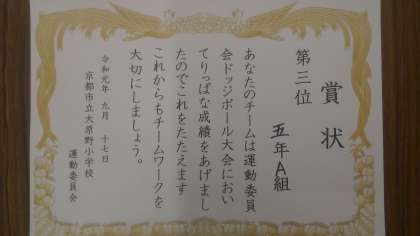 賞状
第三位
五年A組
あなたのチームは運動委員
会ドッジボール大会におい
てりっぱな成績をあげまし
たのでこれをたたえます
これからもチームワークを
大切にしましょう。
令和元年 九月 十七日
京都市立大原野小学校
運動委員会